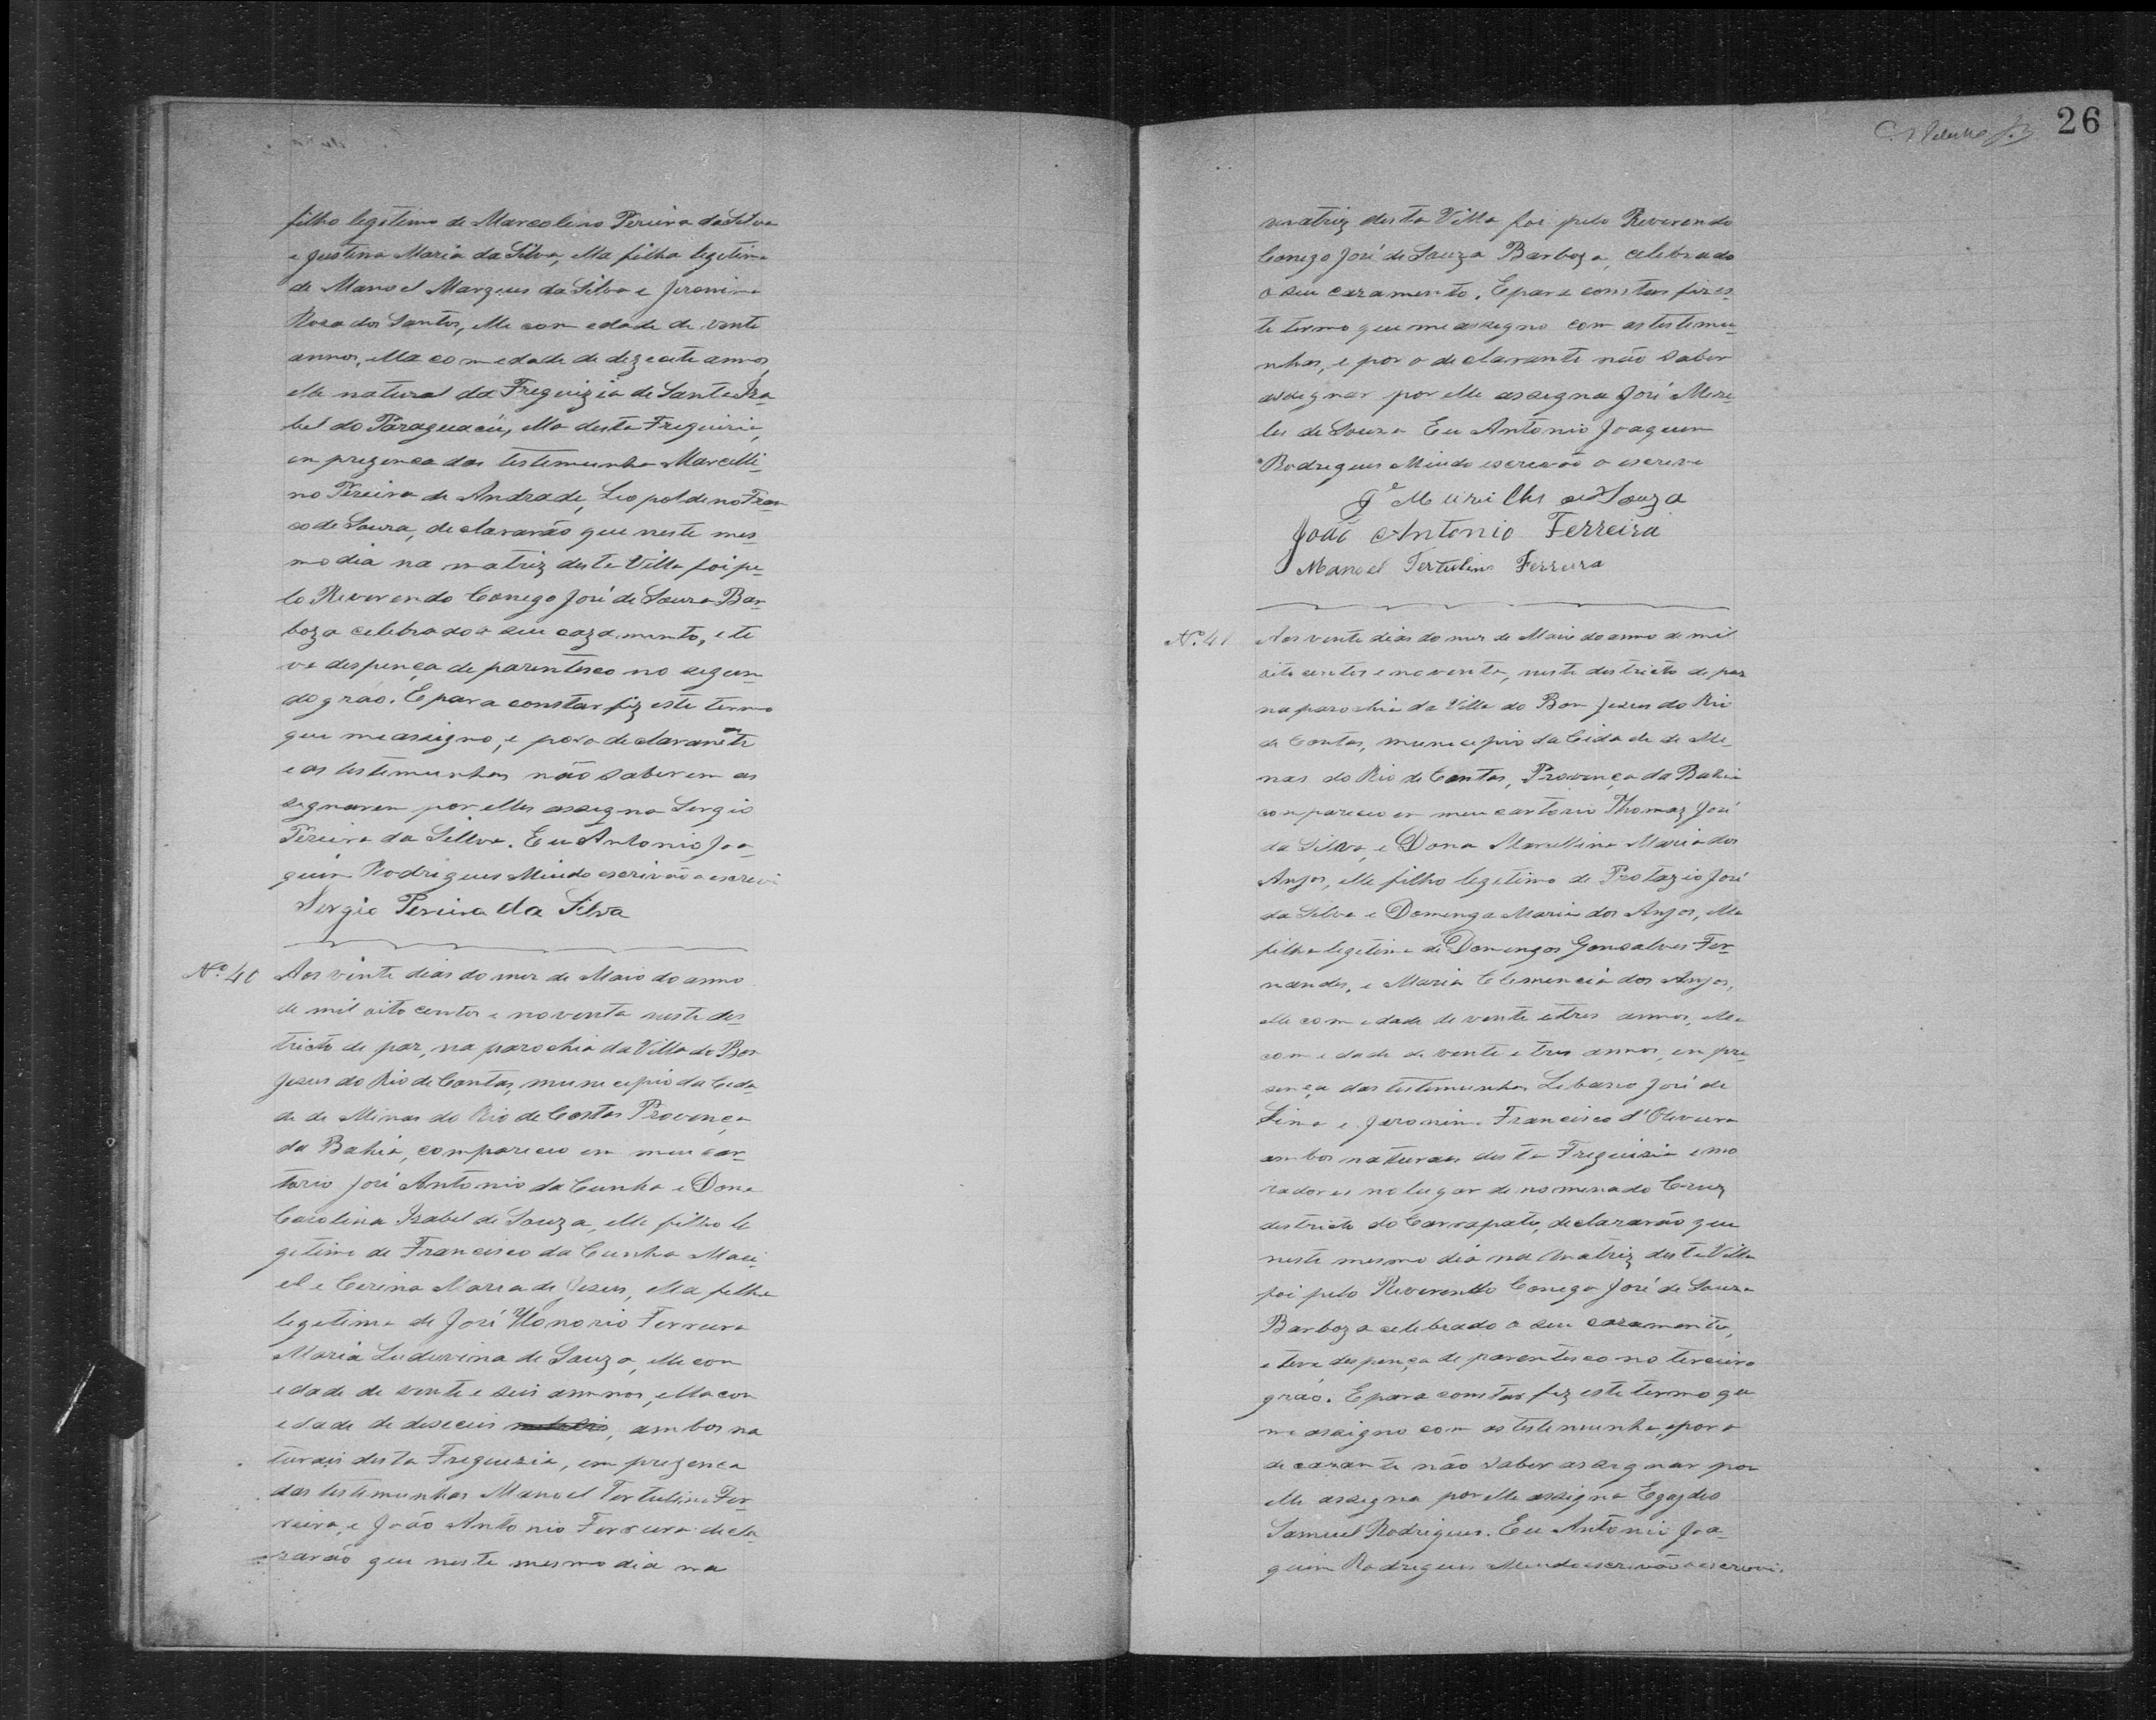 filho legitimo de Marcolino Pereira da Silva
e Justina Maria da Silva, ella filha legitima
de Manoel Marques da Silva e Jeronima
Roza dos Santos, elle com edade de vinte
annos, ella com edade de dezecete annos,
elle natural da Freguizia de Santa Iza
bel do Paraguaçú, ella desta Freguizia,
em prezença das testemunha Marcelli-
no Pereira de Andrade, Leopoldino Fran
co de Souza, declararão que neste mes
mo dia na matriz desta Villa foi pe-
lo Reverendo Conego José de Souza Bar
boza celebrado o seu cazamento, e te
ve despença de parentesco no segun
do gráo. E para constar fiz este termo
que me assigno, e por o declarante
e as testemunhas não saberem as
signarem por elles assigna Sergio
Pereira da Sillva. Eu Antonio Joa-
quim Rodrigues Miudo escrivão o escrevi
Sergio Pereira da Silva
Nº 40 Aos vinte dias do mez de Maio do anno
de mil oito centos e noventa neste des
tricto de paz, na parochia da Villa do Bom
Jesus do Rio de Contas, municipio da Cida
de de Minas do Rio de Contas Provença
da Bahia, compareceu em meu car
torio José Antonio da Cunha e Dona
Carolina Izabel de Souza, elle filho le
gitimo de Francisco da Cunha Maci
el e Cerina Maria de Jesus, ella filha
legetima de José Honorio Ferreira
Maria Ludovina de Souza, elle com
edade de vinte e seis annos, ella com
edade de deseceis, ambos na
turais desta Freguezia, em prezença
das testemunhas Manoel Tertulino Fer
reira, e João Antonio Ferreira decla
rarão que neste mesmo dia na
26
matriz desta Villa foi pelo Reverendo
Conego José de Souza Barboza, celebrado
o seu cazamento. E para constar fiz es
te termo que me assigno com as testemu
nhas, e por o declarante não saber
assignar por elle assegna José Mere
les de Souza Eu Antonio Joaquim
Rodrigues Miudo escrivão o escrevi
Je Murilles de Souza
João Antonio Ferreira
Manoel Tertulino Ferreira
Nº 41 Aos vinte dias do mez de Maio do anno de mil
oito centos e noventa, neste destricto de paz
na parochia da Villa do Bom Jesus do Rio
de Contas, municipio da Cidade de Me
nas do Rio de Contas, Provença da Bahia
compareceu em meu cartorio Thomaz José
da Silva, e Dona Marcellina Maria dos
Anjos, elle filho legetimo de Protazio José
da Silva e Dominga Maria dos Anjos, ella
filha legetima de Domingos Gonsalves Fer
nandes, e Maria Clemencia dos Anjos,
elle com edade de vente e tres annos, ella
com edade de vente e tres annos, em pre
sença das testemunhas Libano José de
Lima e Jeronimo Francisco d'Oliveira
ambos naturaes desta Freguizia e mo
radores no lugar denomenado Cruz
destricto do Carrapato, declararão que
neste mesmo dia na Matriz desta Villa
foi pelo Reverendo Conego José de Souza
Barboza celebrado o seu cazamento,
e teve despença de parentesco no terceiro
gráo. E para constar fiz este termo que
me assigno com as testemunha, e por o
decarante não saber assegnar por
elle assegna por elle assigna
Samuel Rodrigues. Eu Antonio Joa
quim Rodrigues Miudo escrivão o escrevi.